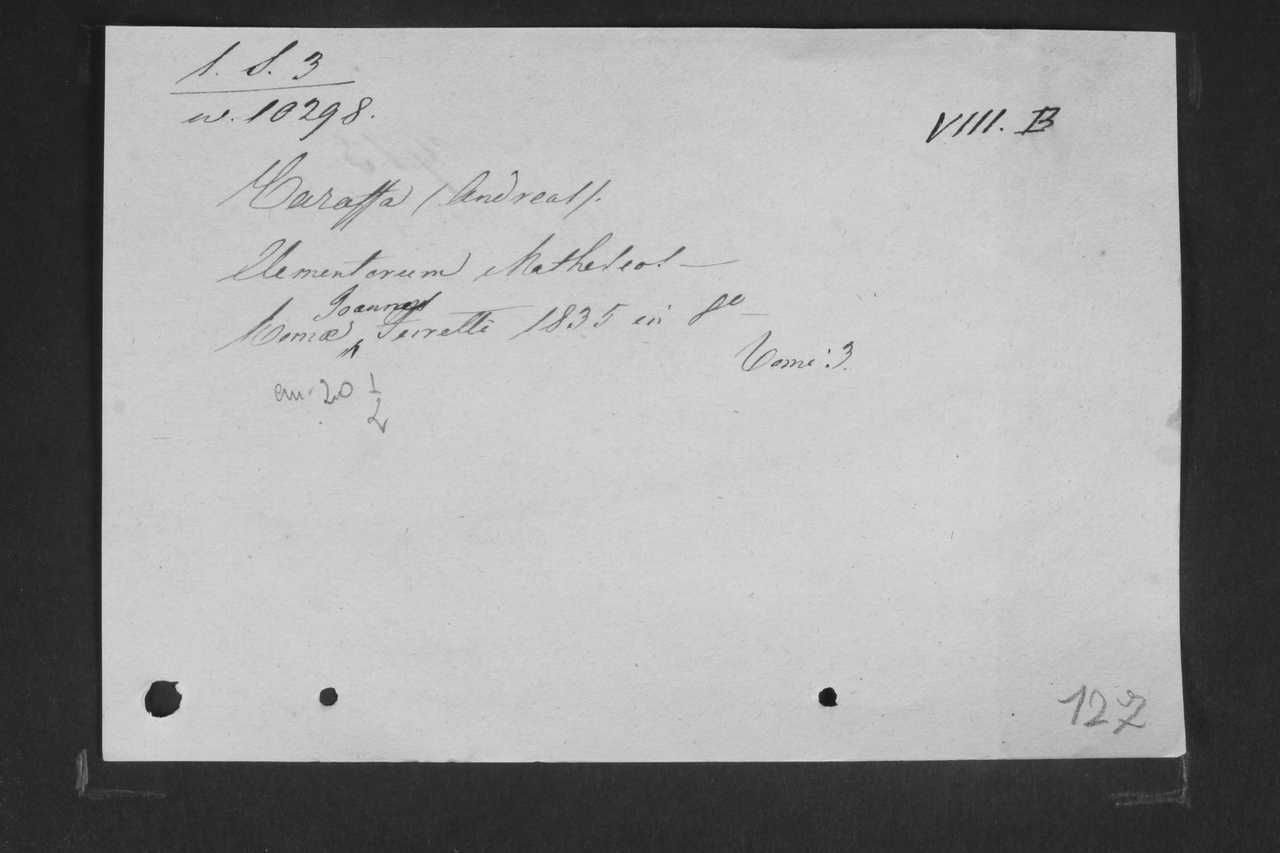 1. S. 3
w. 10298.
VIII. B
Caraffa (Andreas).
Elementorum Matheseos —
Romæ Joannes Ferretti 1835 in 8º —
Tomi: 3.
cm. 20 1/2
127